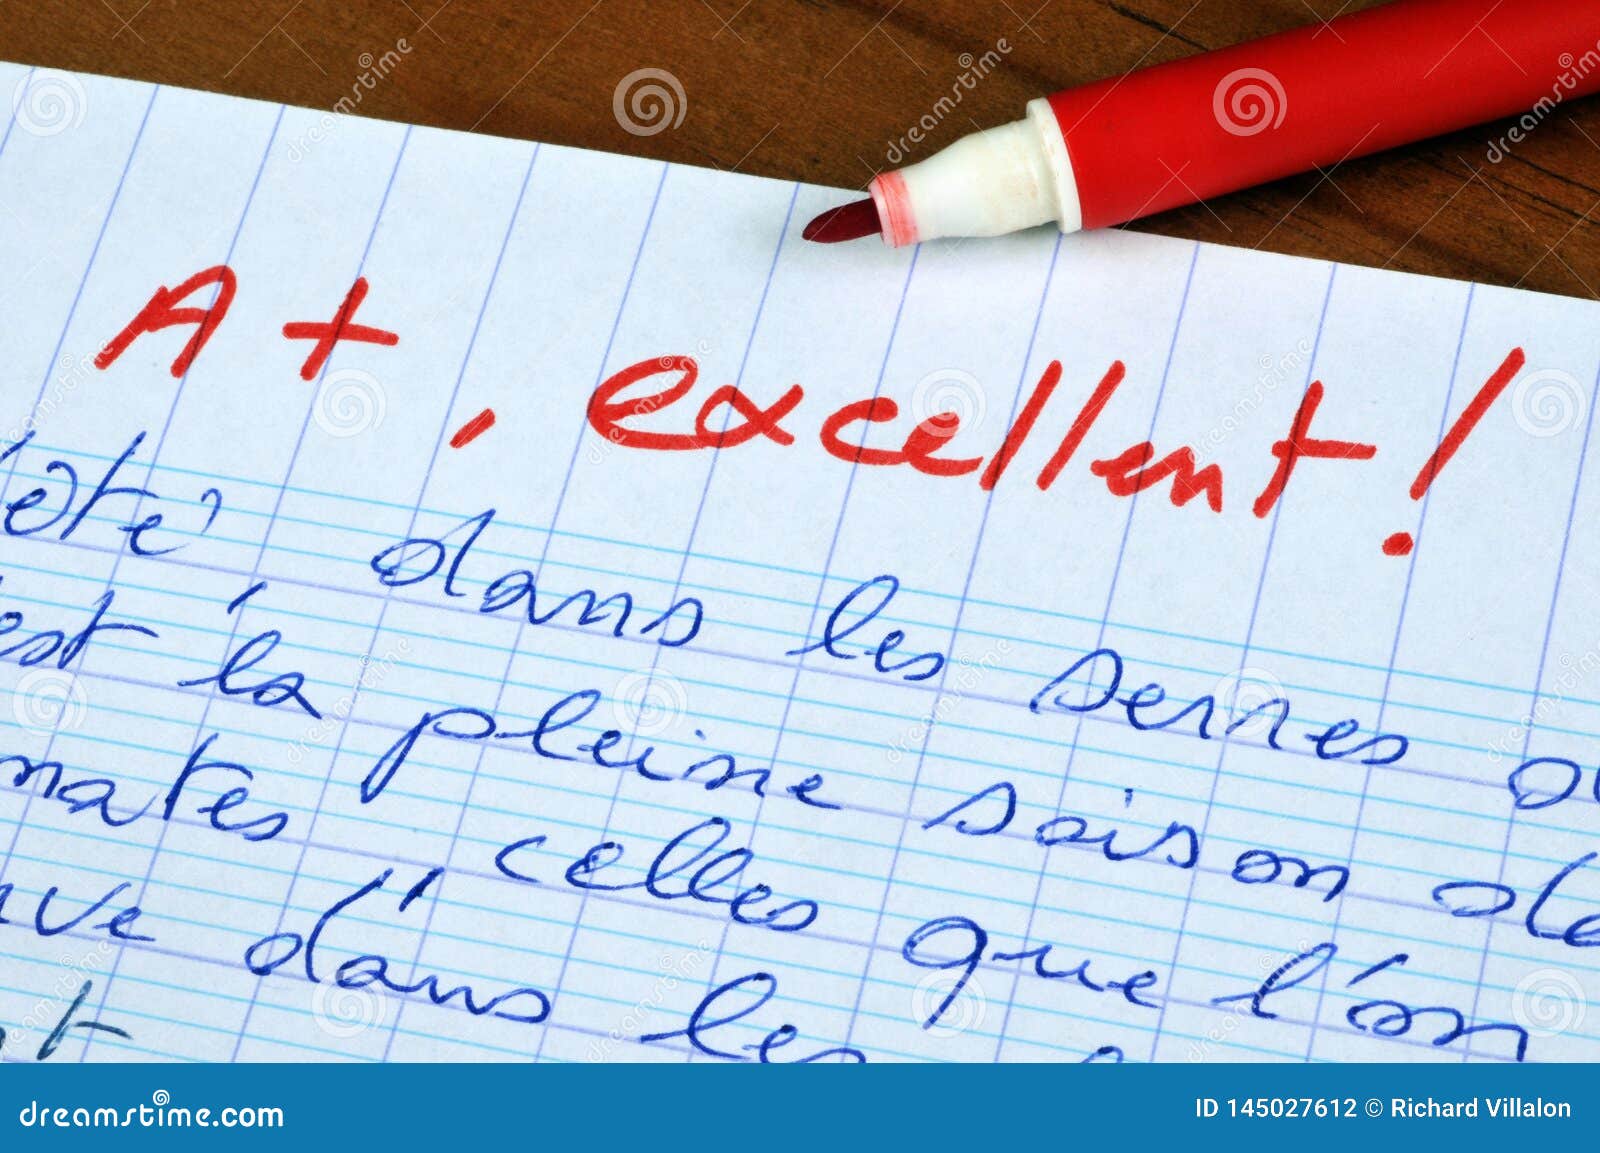 A+, excellent!
dans les serres
est la pleine saison de
celles que l'on
dans les
dreamstime.com
ID 145027612 © Richard Villalon